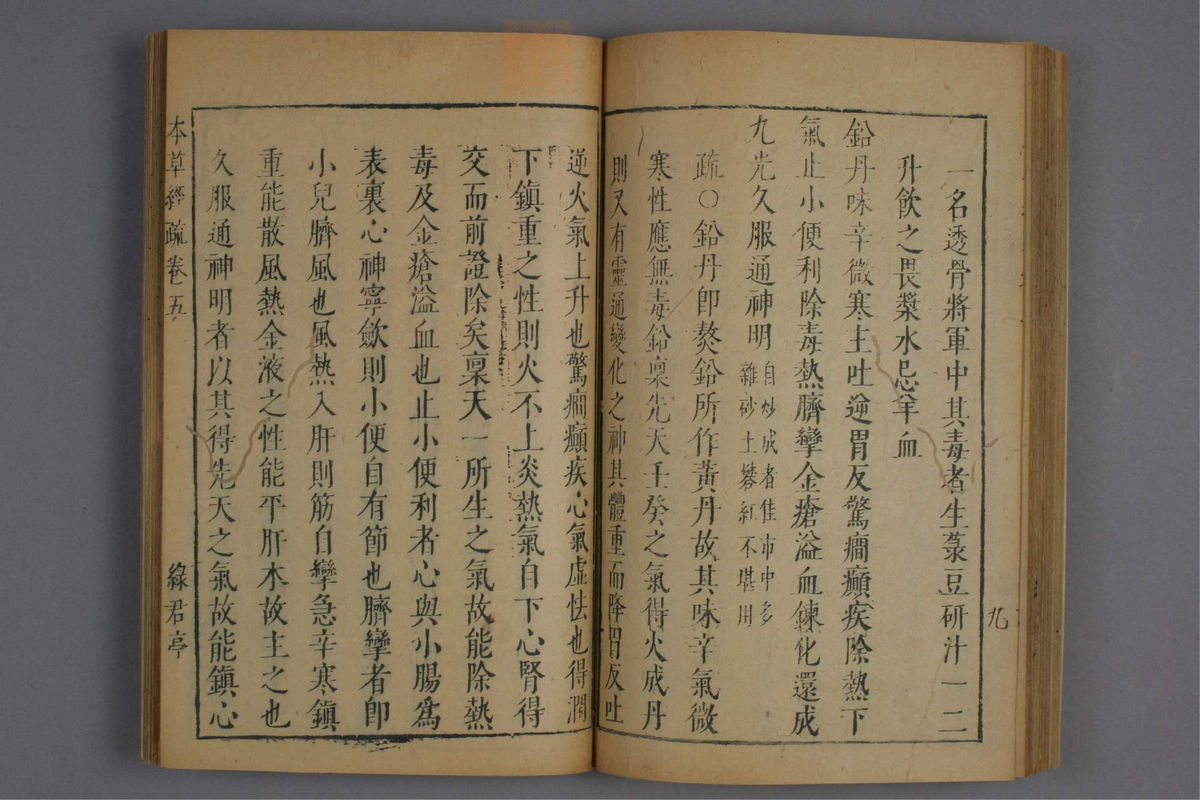 九
一名透骨將軍中其毒者生菉豆研汁一二
升飲之畏漿水忌羊血
鉛丹味辛微寒主吐逆胃反驚癎癲疾除熱下
氣止小便利除毒熱臍攣金瘡溢血鍊化還成
九光久服通神明自炒成者佳市中多
雜砂土礬紅不堪用
疏○鉛丹卽熬鉛所作黃丹故其味辛氣微
寒性應無毒鉛稟先天壬癸之氣得火成丹
則又有靈通變化之神其體重而降胃反吐
逆火氣上升也驚癎癲疾心氣虛怯也得潤
下鎮重之性則火不上炎熱氣自下心腎得
交而前證除矣稟天一所生之氣故能除熱
毒及金瘡溢血也止小便利者心與小腸爲
表裏心神寧斂則小便自有節也臍攣者卽
小兒臍風也風熱入肝則筋自攣急辛寒鎮
重能散風熱金液之性能平肝木故主之也
久服通神明者以其得先天之氣故能鎮心
本草經疏 卷五 綠君亭